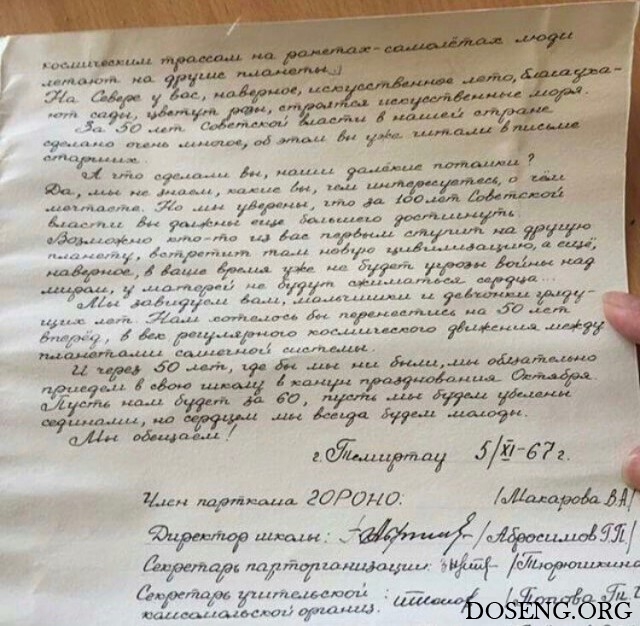 космическим трассам на ракетах-самолётах люди
летают на другие планеты.
На Севере у вас, наверное, искусственное лето, благоуха-
ют сады, цветут розы, строятся искусственные моря.
За 50 лет Советской власти в нашей стране
сделано очень много, об этом вы уже читали в письме
старших.
А что сделали вы, наши далёкие потомки?
Да, мы не знаем, какие вы, чем интересуетесь, о чём
мечтаете. Но мы уверены, что за 100 лет Советской
власти вы должны ещё большего достигнуть.
Возможно кто-то из вас первым ступит на другую
планету, встретит там новую цивилизацию, а ещё,
наверное, в ваше время уже не будет угрозы войны над
миром, у матерей не будут сжиматься сердца...
Мы завидуем вам, мальчишки и девчонки гряду-
щих лет. Нам хотелось бы перенестись на 50 лет
вперёд, в век регулярного космического движения между
планетами солнечной системы.
И через 50 лет, где бы мы ни были, мы обязательно
приедем в свою школу в канун празднования Октября.
Пусть нам будет за 60, пусть мы будем убелены
сединами, но сердцем мы всегда будем молоды.
Мы обещаем!
г. Темиртау 5/XI-67 г.
Член парткома ГОРОНО: /Макарова В.А/
Директор школы: /Абросимов Г.П./
Секретарь парторганизации: /Тюрюшкина
Секретарь учительской /Попова Г.
комсомольской организ.
DOSENG.ORG